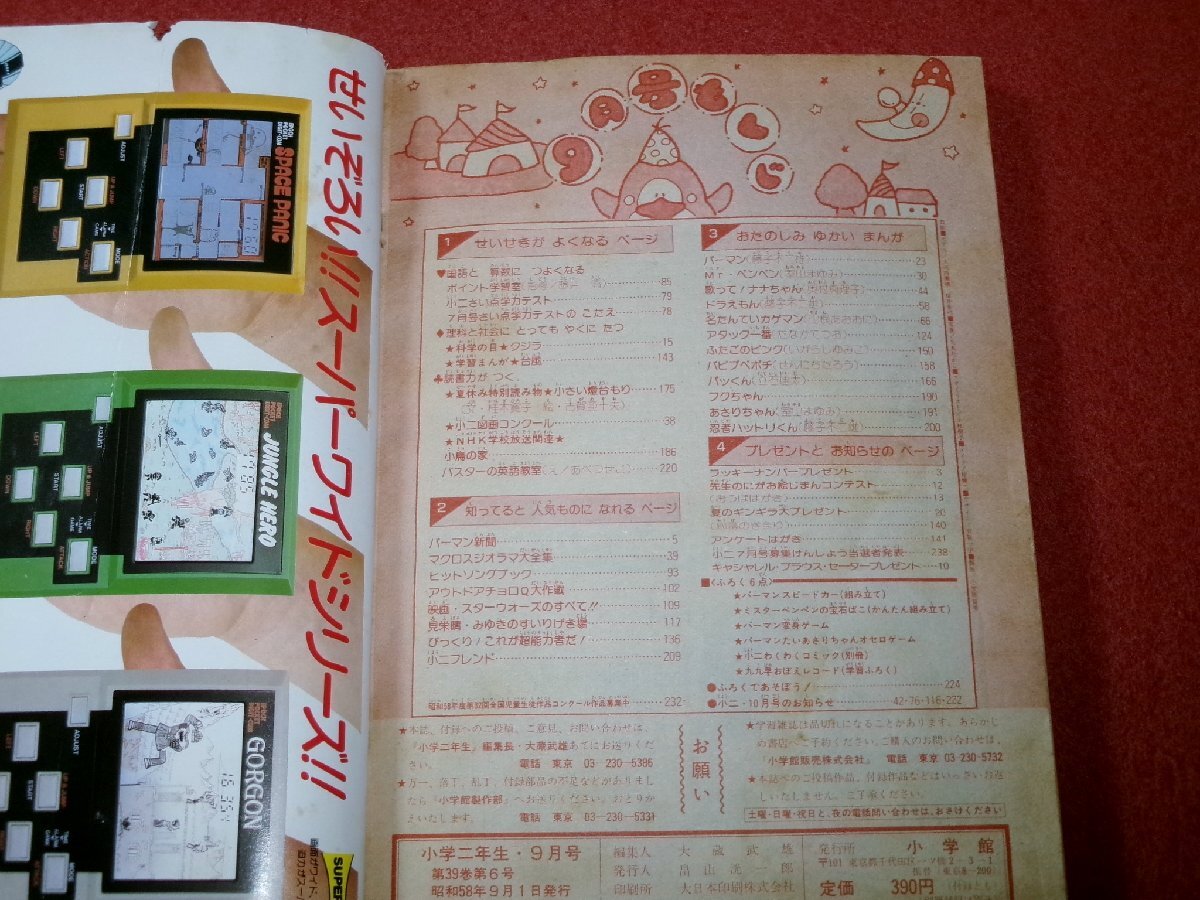 せいぞろい!!スーパーワイドシリーズ!!
SPACE PANIC
ADJUST
LEFT
UP & JUMP
START
DOWN
RIGHT
MODE
ACTION
JUNGLE HERO
ADJUST
LEFT
UP & JUMP
START
DOWN
RIGHT
MODE
ATTACK
GORGON
16 35
ADJUST
LEFT
START
RIGHT
MODE
SUPER
9月号もくじ
1 せいせきが よくなる ページ
♥国語と 算数に つよくなる
ポイント学習室
85
小二さい点学力テスト……79
7月号さい点学力テストの こたえ……78
♦理科と社会に とっても やくに たつ
★科学の目★クジラ……15
★学習まんが★台風……143
♣読書力が つく
★夏休み特別読み物★小さい燈台もり……175
★小二図画コンクール……38
★NHK学校放送関連★
小鳥の家……186
バスターの英語教室
220
2 知ってると 人気ものに なれる ページ
パーマン新聞……5
マクロスジオラマ大全集……39
ヒットソングブック……93
アウトドアチョロQ大作戦……102
映画・スターウォーズのすべて!!……109
見栄晴・みゆきのすいりげき場……117
びっくり!これが超能力者だ!……136
小二フレンド……209
昭和58年度第32回全国児童生徒作品コンクール作品募集中……232
3 おたのしみ ゆかい まんが
パーマン(藤子不二雄)……23
Mr・ペンペン
30
歌って!ナナちゃん
44
ドラえもん(藤子不二雄)……58
名たんていカゲマン
66
アタック一番(たなかてつお)……124
ふたごのピンク(いがらしゆみこ)……150
パピプペポチ
158
パッくん
166
フクちゃん……190
あさりちゃん(室山まゆみ)……191
忍者ハットリくん(藤子不二雄)……200
4 プレゼントと お知らせの ページ
ラッキーナンバープレゼント……3
先生のにがお絵じまんコンテスト……12
13
夏のギンギラ大プレゼント……20
140
アンケートはがき……141
小二7月号募集けんしょう当選者発表……238
キャシャレル・ブラウス・セータープレゼント……10
■〈ふろく6点〉
★パーマンスピードカー(組み立て)
★ミスターペンペンの宝石ばこ(かんたん組立て)
★パーマン変身ゲーム
★パーマンたいあさりちゃんオセロゲーム
★小二わくわくコミック(別冊)
★九九早おぼえレコード(学習ふろく)
●ふろくであそぼう!……224
●小二・10月号のお知らせ……42・76・116・232
★本誌、付録へのご投稿、ご意見、お問い合わせは、
『小学二年生』編集長・大蔵武雄あてにお送りくだ
さい。 電話 東京 03-230-5386
★万一、落丁、乱丁、付録部品の不足などがありまし
たら「小学館製作部」へお送りください。おとりか
えいたします。 電話 東京 03-230-5331
お願い
★学習雑誌は品切れになることがあります。あらかじ
め書店へご予約ください。ご購入のお問い合わせは、
「小学館販売株式会社」 電話 東京 03-230-5732
★本誌へのご投稿作品、付録作品などはいっさいお返
しいたしません。ご了承ください。
土曜・日曜・祝日と、夜の電話問い合わせは、おさけください
小学二年生・9月号
第39巻第6号
昭和58年9月1日発行
編集人 大蔵武雄
発行人
印刷所 大日本印刷株式会社
発行所 小学館
〒101 東京都千代田区一ツ橋2-3-1
振替(東京8-200)
定価 390円(付録とも)